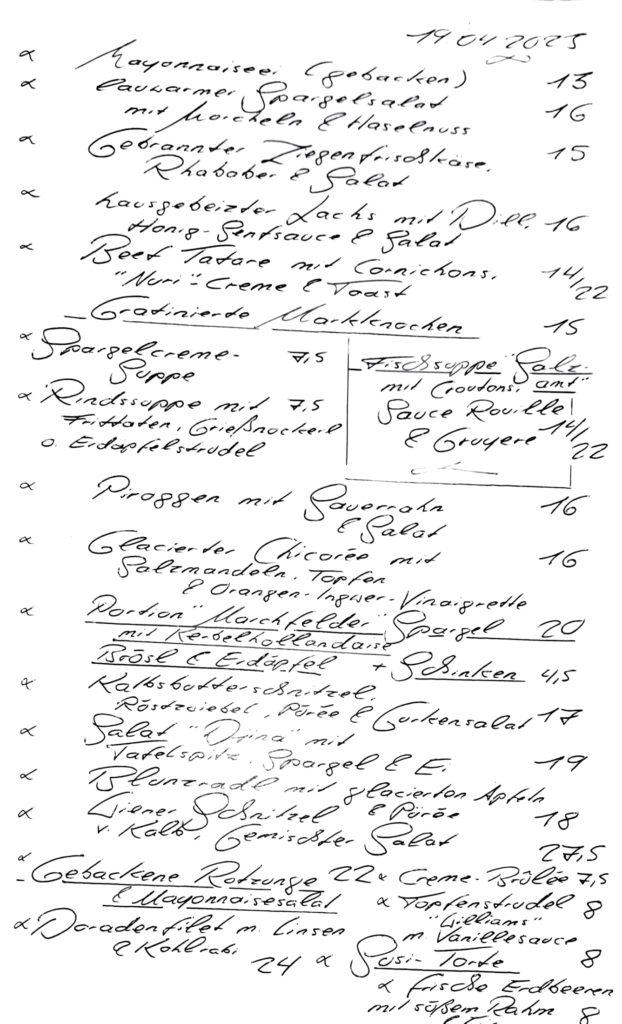 19 04 2023
α Mayonnaiseei (gebacken) 13
α Lauwarmer Spargelsalat
mit Morcheln & Haselnuss 16
α Gebrannter Ziegenfrischkäse, 15
Rhababer & Salat
α hausgebeizter Lachs mit Dill, 16
Honig-Senfsauce & Salat
α Beef Tatare mit Cornichons, 14/22
"Nuri"-Creme & Toast
- Gratinierte Markknochen 15
α Spargelcreme- 7,5
Suppe
α Rindssuppe mit 7,5
Frittaten, Grießnockerl
o. Erdäpfelstrudel
- Fischsuppe "Salz-
mit Croutons, amt"
Sauce Rouille
& Gruyere 14/22
α Piroggen mit Sauerrahm 16
& Salat
α Glacierter Chicorée mit 16
Salzmandeln, Topfen
& Orangen-Ingwer-Vinaigrette
α Portion "Marchfelder" Spargel 20
mit Kerbelhollandaise
Brösl & Erdäpfel + Schinken 4,5
α Kalbsbutterschnitzel,
Röstzwiebel, Pürée & Gurkensalat 17
α Salat "Djina" mit
Tafelspitz, Spargel & E. 19
α Blunzradl mit glacierten Äpfeln
& Pürée 18
α Wiener Schnitzel
v. Kalb, Gemischter Salat 27,5
α
- Gebackene Rotzunge 22
& Mayonnaisesalat
α Doradenfilet m. Linsen
& Kohlrabi 24
α Creme-Brûlée 7,5
α Topfenstrudel 8
"Williams"
m Vanillesauce
α Susi-Torte 8
α frische Erdbeeren
mit süßem Rahm 8